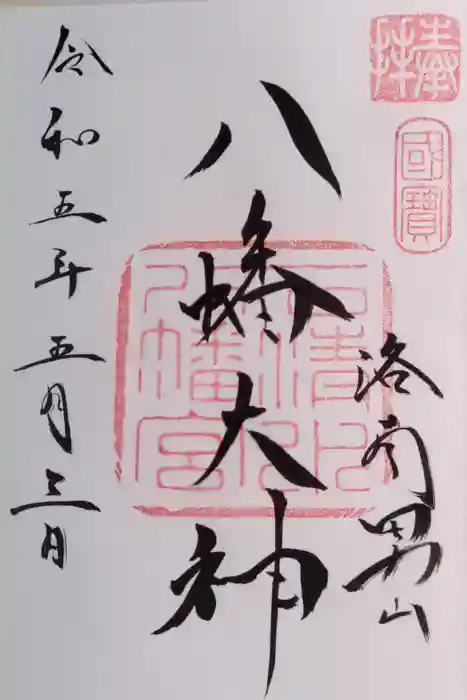 奉拝
國寶
洛南男山
石清水八幡宮
八幡大神
令和五年五月三日